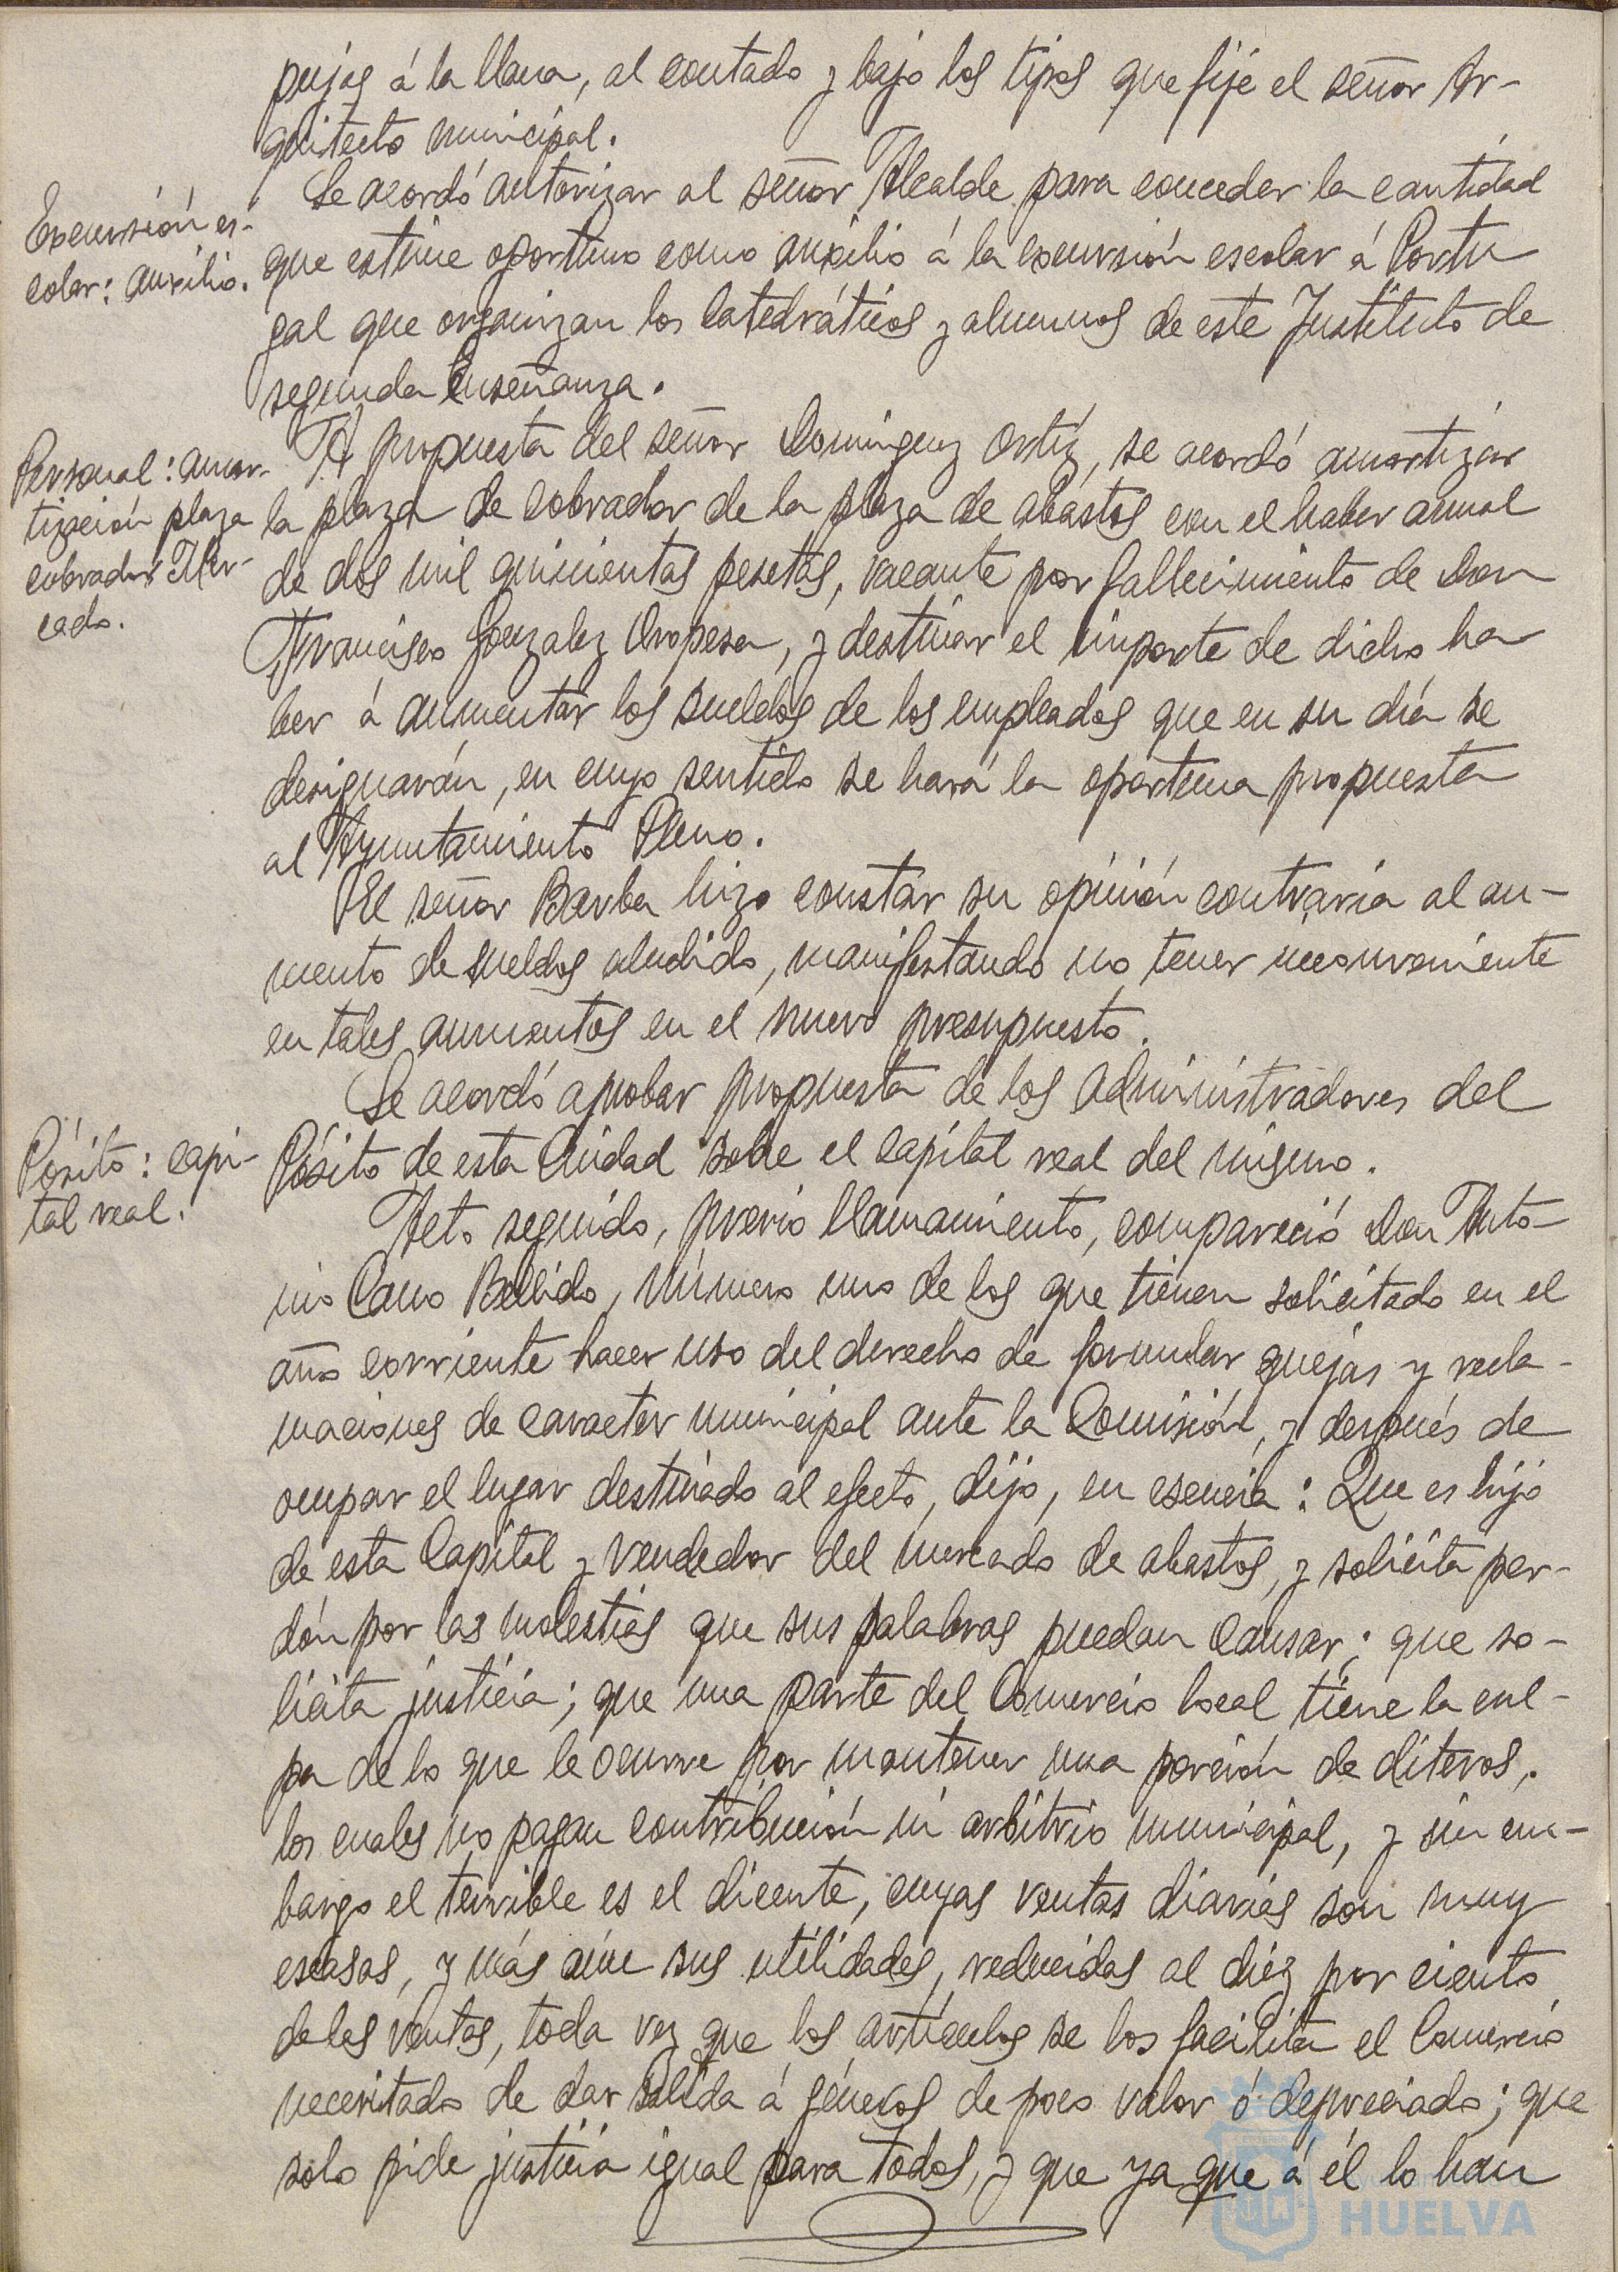 pujas á la llana, al contado y bajo los tipos que fije el señor Ar-
quitecto municipal.
Excursión es-
colar: auxilio.
Se acordó autorizar al señor Alcalde para conceder la cantidad
que estime oportuno como auxilio á la excursión escolar á Portu
gal que organizan los Catedráticos y alumnos de este Instituto de
segunda Enseñanza.
Personal: amor-
tización plaza
cobrador Mer-
cado.
A propuesta del señor Dominguez Ortíz, se acordó amortizar
la plaza de Cobrador de la plaza de abastos con el haber anual
de dos mil quinientas pesetas, vacante por fallecimiento de Don
Francisco Gonzalez Oropesa, y destinar el importe de dicho ha
ber á aumentar los sueldos de los empleados que en su día se
designarán, en cuyo sentido se hará la oportuna propuesta
al Ayuntamiento Pleno.
El señor Barba hizo constar su opinión contraria al au-
mento de sueldos aludido, manifestando no tener inconveniente
en tales aumentos en el nuevo presupuesto.
Pósito: capi-
tal real.
Se acordó aprobar propuesta de los Administradores del
Pósito de esta Ciudad sobre el capital real del mismo.
Acto seguido, previo llamamiento, compareció Don Anto-
nio Cano Bellido, número uno de los que tienen solicitado en el
año corriente hacer uso del derecho de formular quejas y recla-
maciones de caracter municipal ante la Comisión, y después de
ocupar el lugar destinado al efecto, dijo, en esencia: Que es hijo
de esta Capital y vendedor del mercado de abastos, y solicita per-
dón por las molestias que sus palabras puedan causar; que so-
licita justicia; que una parte del Comercio local tiene la cul-
pa de lo que le ocurre por mantener una porción de diteros,
los cuales no pagan contribución ni arbitrio municipal, y sin em-
bargo el terrible es el dicente, cuyas ventas diarias son muy
escasas, y más aún sus utilidades, reducidas al diez por ciento
de las ventas, toda vez que los artículos se los facilita el Comercio
necesitado de dar salida á géneros de poco valor ó depreciado; que
solo pide justicia igual para todos, y que ya que á él lo han
HUELVA